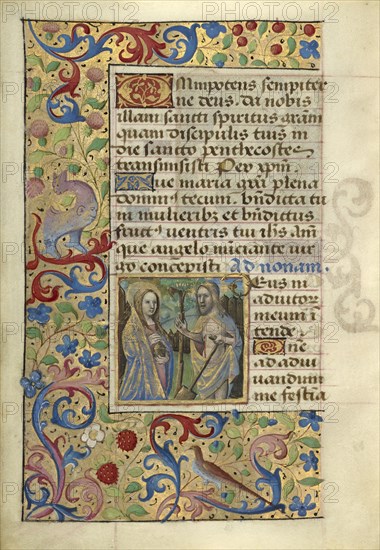 Omnipotens sempiter
ne deus. da nobis
illam sancti spiritus grãm
quam discipulis tuis in
die sancto penthecostes
transmisisti Per xp̃m.
Aue maria grã plena
dominꝰ tecum. bñdicta tu
in mulieribꝫ et bñdictus
fructꝰ ventris tui ihs Am̃
que angelo nũciante vir
go concepisti Ad nonam.
Deus in
adiutor
meum ĩ
tende
Dñe
ad adiu
uandum
me festia